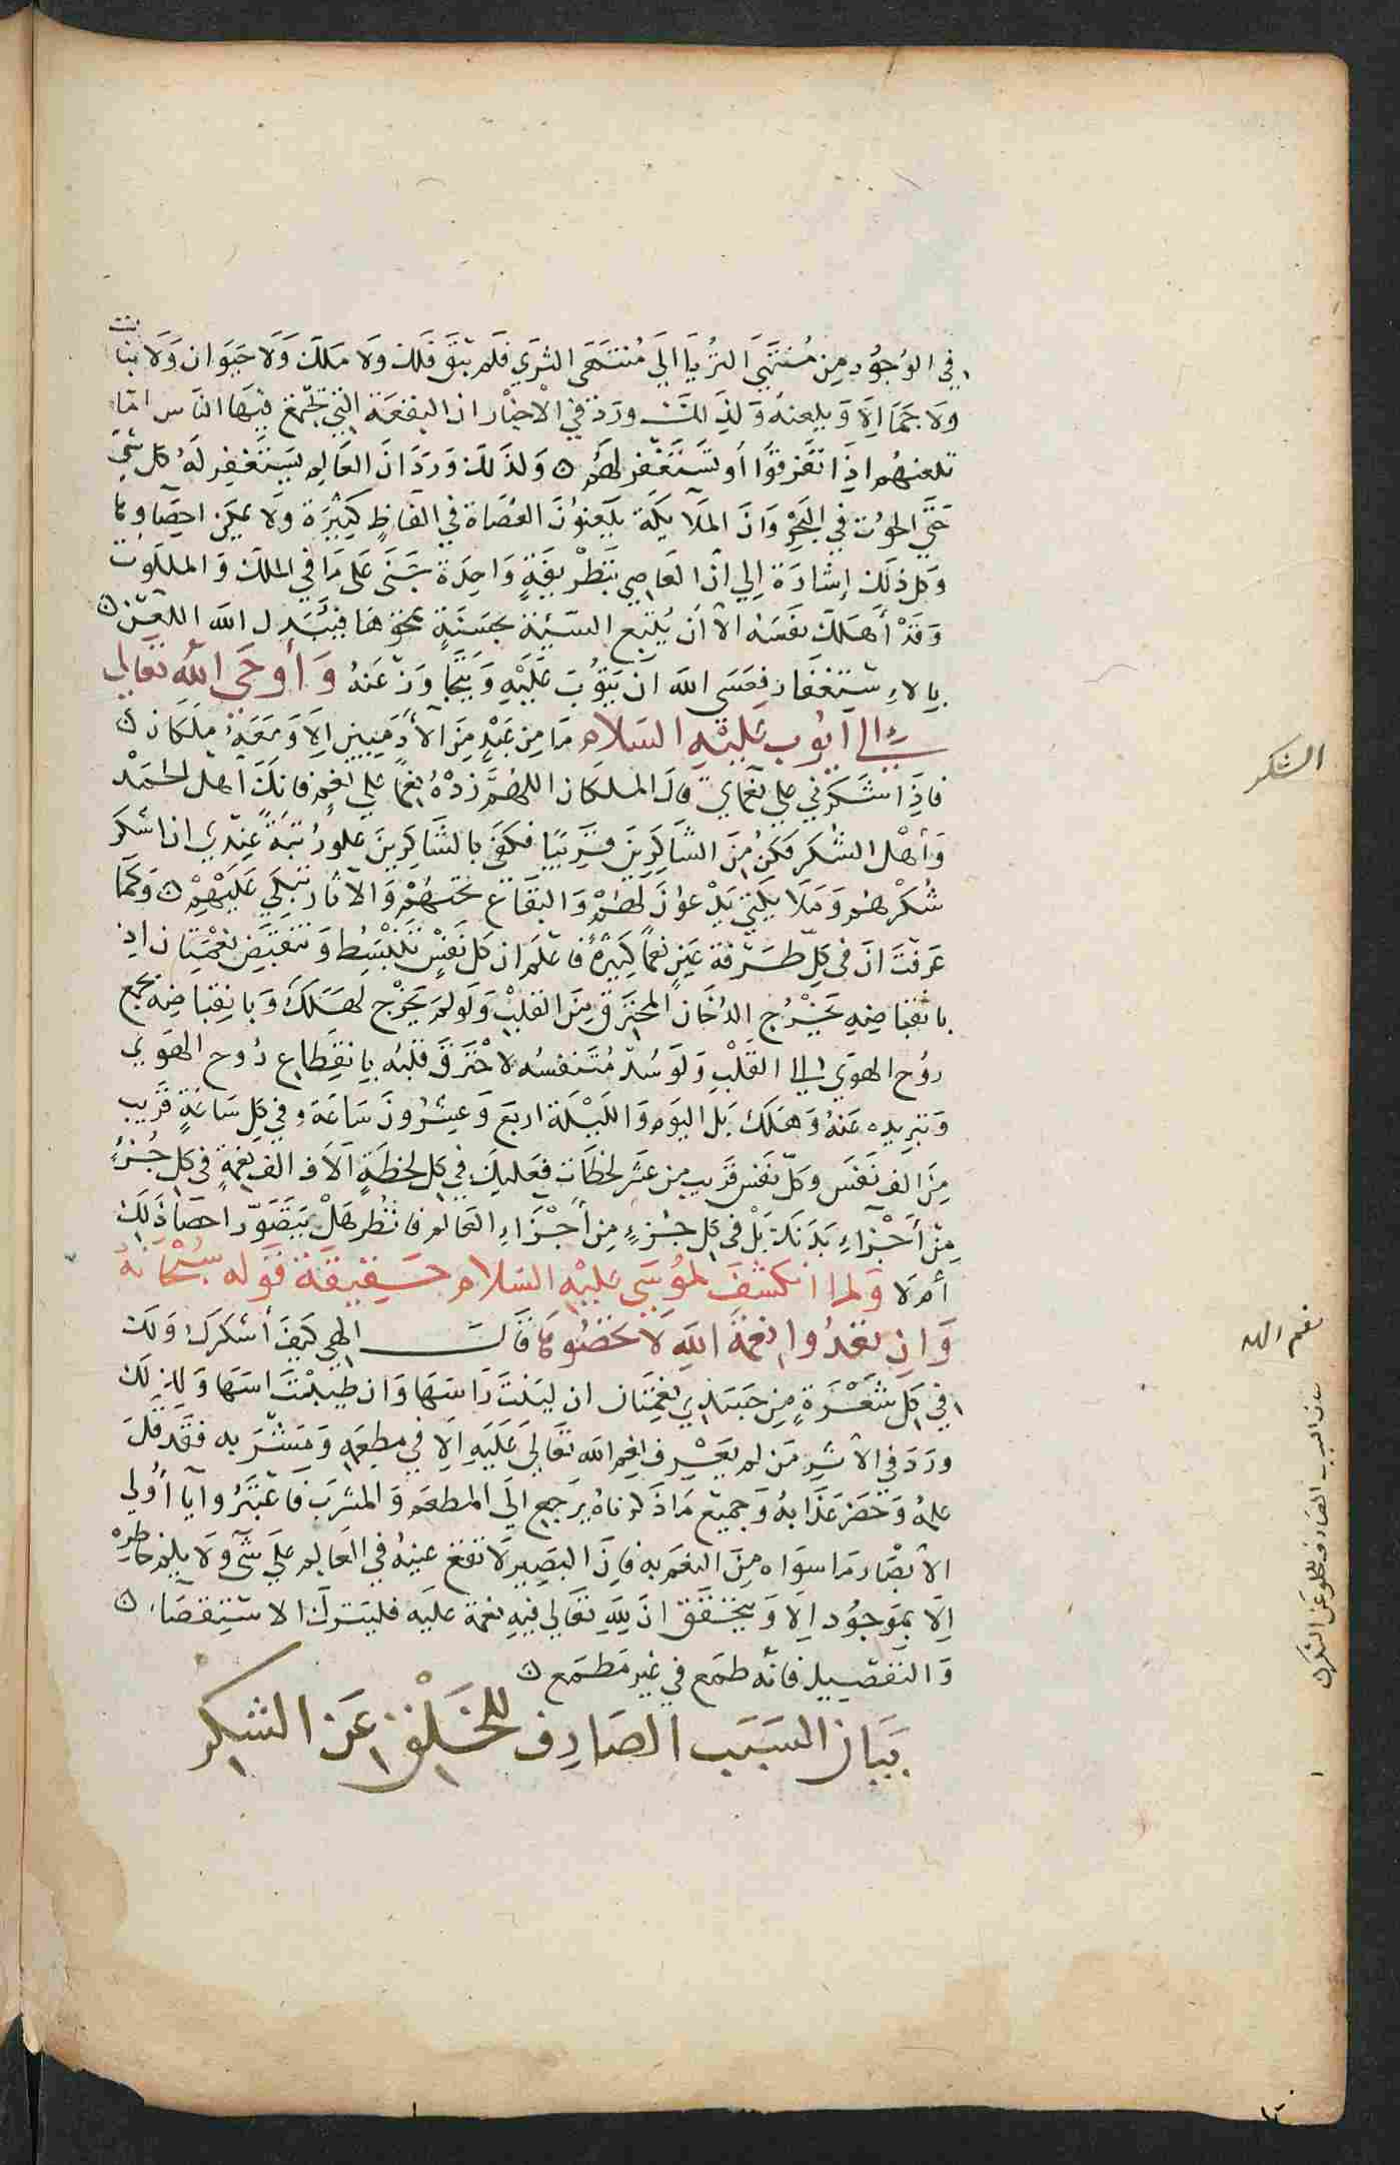 في الوُجُودِ مِن مُنتَهَى الثُريَّا اِلَى مُنتَهَى الثرَي فلَم يَبقَ فَلَك وَلَا مَلَك وَلَا حَيَوَان وَلَا نبات
ولَا جَمَا اِلَا وَيلعنهُ وَلذَلكَ وردَ في الاخبار ان البقعَة التي تجتمع فيهَا النَاس امّا
تلعنهُم اذِا تفَرقُوا أو تَستَغفِر لهُم ن وَلذَلك وَرَدَ انَ العَالِم يَستَغفِر لَهُ كل شيَ
حَتي الحوُت في البَحْرِ وَانَ المَلَائِكَة يَلعنوُنَ العُصَاة في الفاظٍ كثِيرَة ولَا يمكِن احصَاوهَا
وَكل ذلَك إِشَارَة اِلي انَ العَاصِي بتَطْريفَةٍ وَاحِدَة جَنَى عَلى مَا في الملك وَالملكوُت
وَقَدْ أهلَكَ نفسَهُ الا أن يُتبع السَيّئة بحسَنَةٍ تمحوهَا فيَتَبَدل الله اللعَن ن
بِالاِستغفَار فعَسَى الله ان يَتوُبَ عَلَيْهِ وَيَتجَاوَز عَنهُ وَأَوحَى الله تعَالي
اِلى ايّوُب عَليْهِ السَلَام مَا مِن عَبْدٍ مِنَ الآدَمِييِن اِلَا وَمَعَهُ مَلَكَان ن
فاذَِا شَكَرَني علي نَعْمَايَ قالَ المَلكَان اللهُمَّ زدْهُ نِعَمًا عَلي نعَمٍ فانكَ اهلُ الحَمْد
وَأهْل الشُكر فكَن مِنَ الشَاكِرِينَ قَرِيبًا فكفى بالشَاكِرِينَ علوُ رُتبَة عِندِي اني اشكر
شُكْرهُم وَمَلَائِكتي يَدْعوُنَ لهُمْ وَالبقَاع تحبهُمْ وَالآثار تبَكي عَلَيْهِمْ ن وَكمَا
عَرفتَ انَ في كلِّ طَرفة عَينٍ نعَمًا كثِيرَةً فاعْلَم ان كل نَفَسٍ يَنْبَسِط وَيَنقبَض نعْمَتان اذ
بانقبَاضِهِ يَخْرُج الدُخَان المحترَق مِنَ القَلبْ وَلَو لم يَخْرُج لهَلَكَ وَبانقِبَاضِه تجمع
روُح الهوَي الي القَلْبِ وَلَو سُدّ مُتَنَفسُه لَاحْتَرَقَ قلبهُ بِانقِطَاع روُح الهَوَي
وَتبرِيده عَنهُ وَهَلَكَ بَل اليَوم وَالليْلَة اربَع وَعشِرُونَ سَاعَة وفي كلِ سَاعَةٍ قَرِيب
مِنَ الف نَفَس وكلّ نفَس قَرِيب مِن عَشر لحظَات فعَليكَ في كل لحظَةٍ آلاف الف نعَمةٍ في كل جُزءٍ
مِنْ أجزَاءِ بدَنكَ بَل في كل جُزءٍ مِن أجْزَاءِ العَالم فانظُر هَلْ يتَصَوّر احصَاء ذَلك
أم لَا وَلما انكشفَ لموُسَى عليْهِ السَلام حَقيقَة قَوله سُبْحَانهُ
وَاِن تعدُوا نِعْمَةَ اللهِ لَا تحصُوهَا قَالَ الهي كيفَ أشكرك وَلَك
في كل شَعْرَةٍ مِن جَسَدِي نعمَتان ان ليَنْتَ رَاسَهَا وَان طيّبْتَ اسَهَا وَلذِلَك
ورَدَ في الاثرِ مَن لم يعْرِف نعِم الله تعَالي عَليَهِ اِلَا في مطِعَمه وَمَشْرَبه فقَد قلَّ
علمُ وَحَضَر عَذَابهُ وَجميع مَا ذَكرناهُ يَرجع اِلي المَطعَم وَالمشرَب فاعْتبَرُوا يا أولي
الابْصَار مَا سِوَاه مِنَ النعَم بهِ فاِن البَصِير لَا تقع عَينهُ في العَالم عَلي شيَ وَلَا يلمُ خَاطِره
اِلَا بمَوجُود اِلَا وَيَتحققَ انَ للهِ تعَالي فيهِ نعمَة عليَه فليترُك الاسْتقصَاء ن
وَالتفصِيل فانه طمَع في غير مَطمَع ن
بَيَان السَبَب الصَارِف للخَلْقِ عَن الشكرْ
الشكر
نعم الله
بيان السبب الصارف للخلق عن الشكر